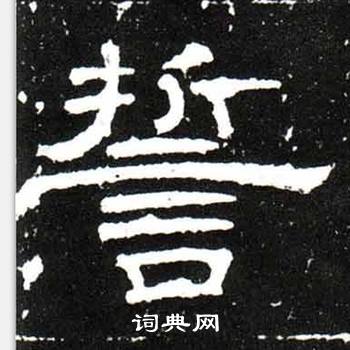 誓
词典网